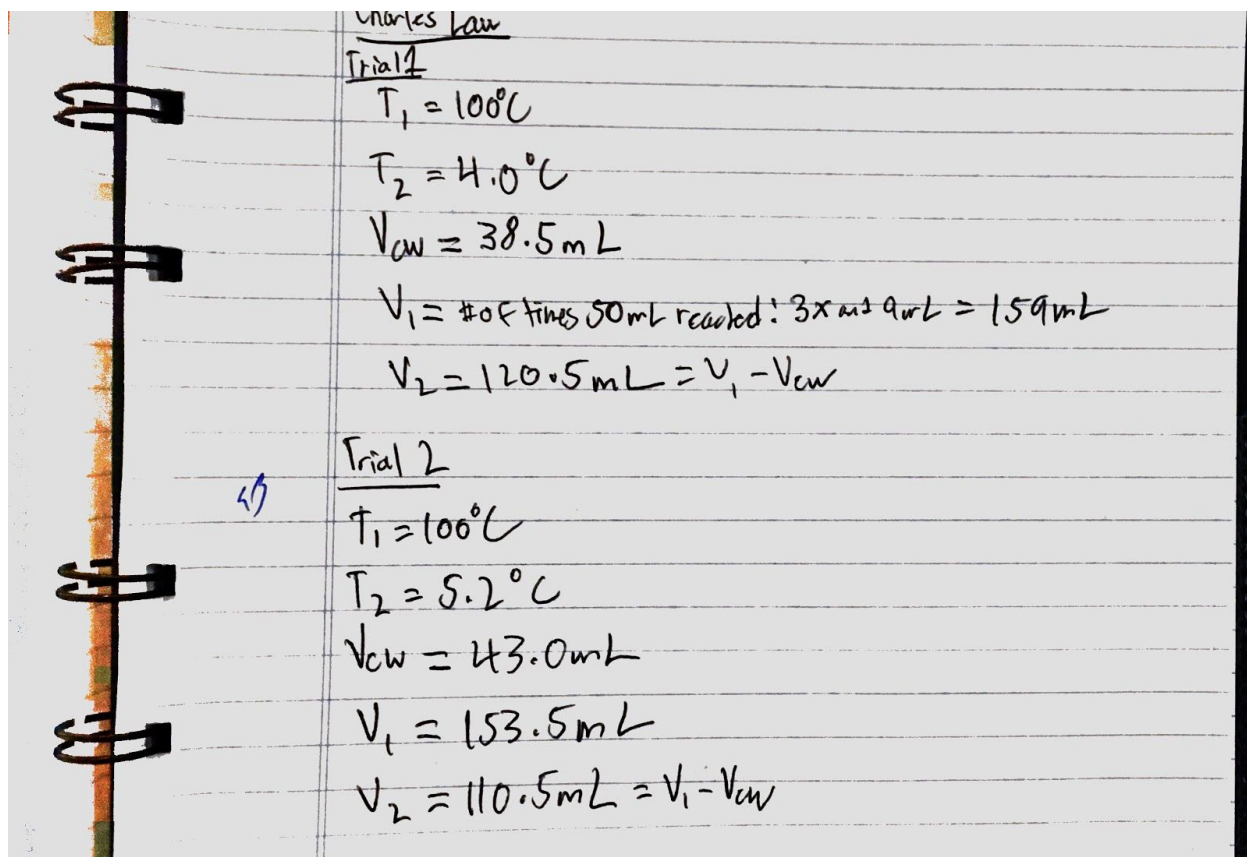 Charles Law
Trial 1
T₁ = 100°C
T₂ = 4.0°C
Vcw = 38.5 mL
V₁ = # of times 50 mL reached: 3x and 9 mL = 159 mL
V₂ = 120.5 mL = V₁ - Vcw
Trial 2
T₁ = 100°C
T₂ = 5.2°C
Vcw = 43.0 mL
V₁ = 153.5 mL
V₂ = 110.5 mL = V₁ - Vcw